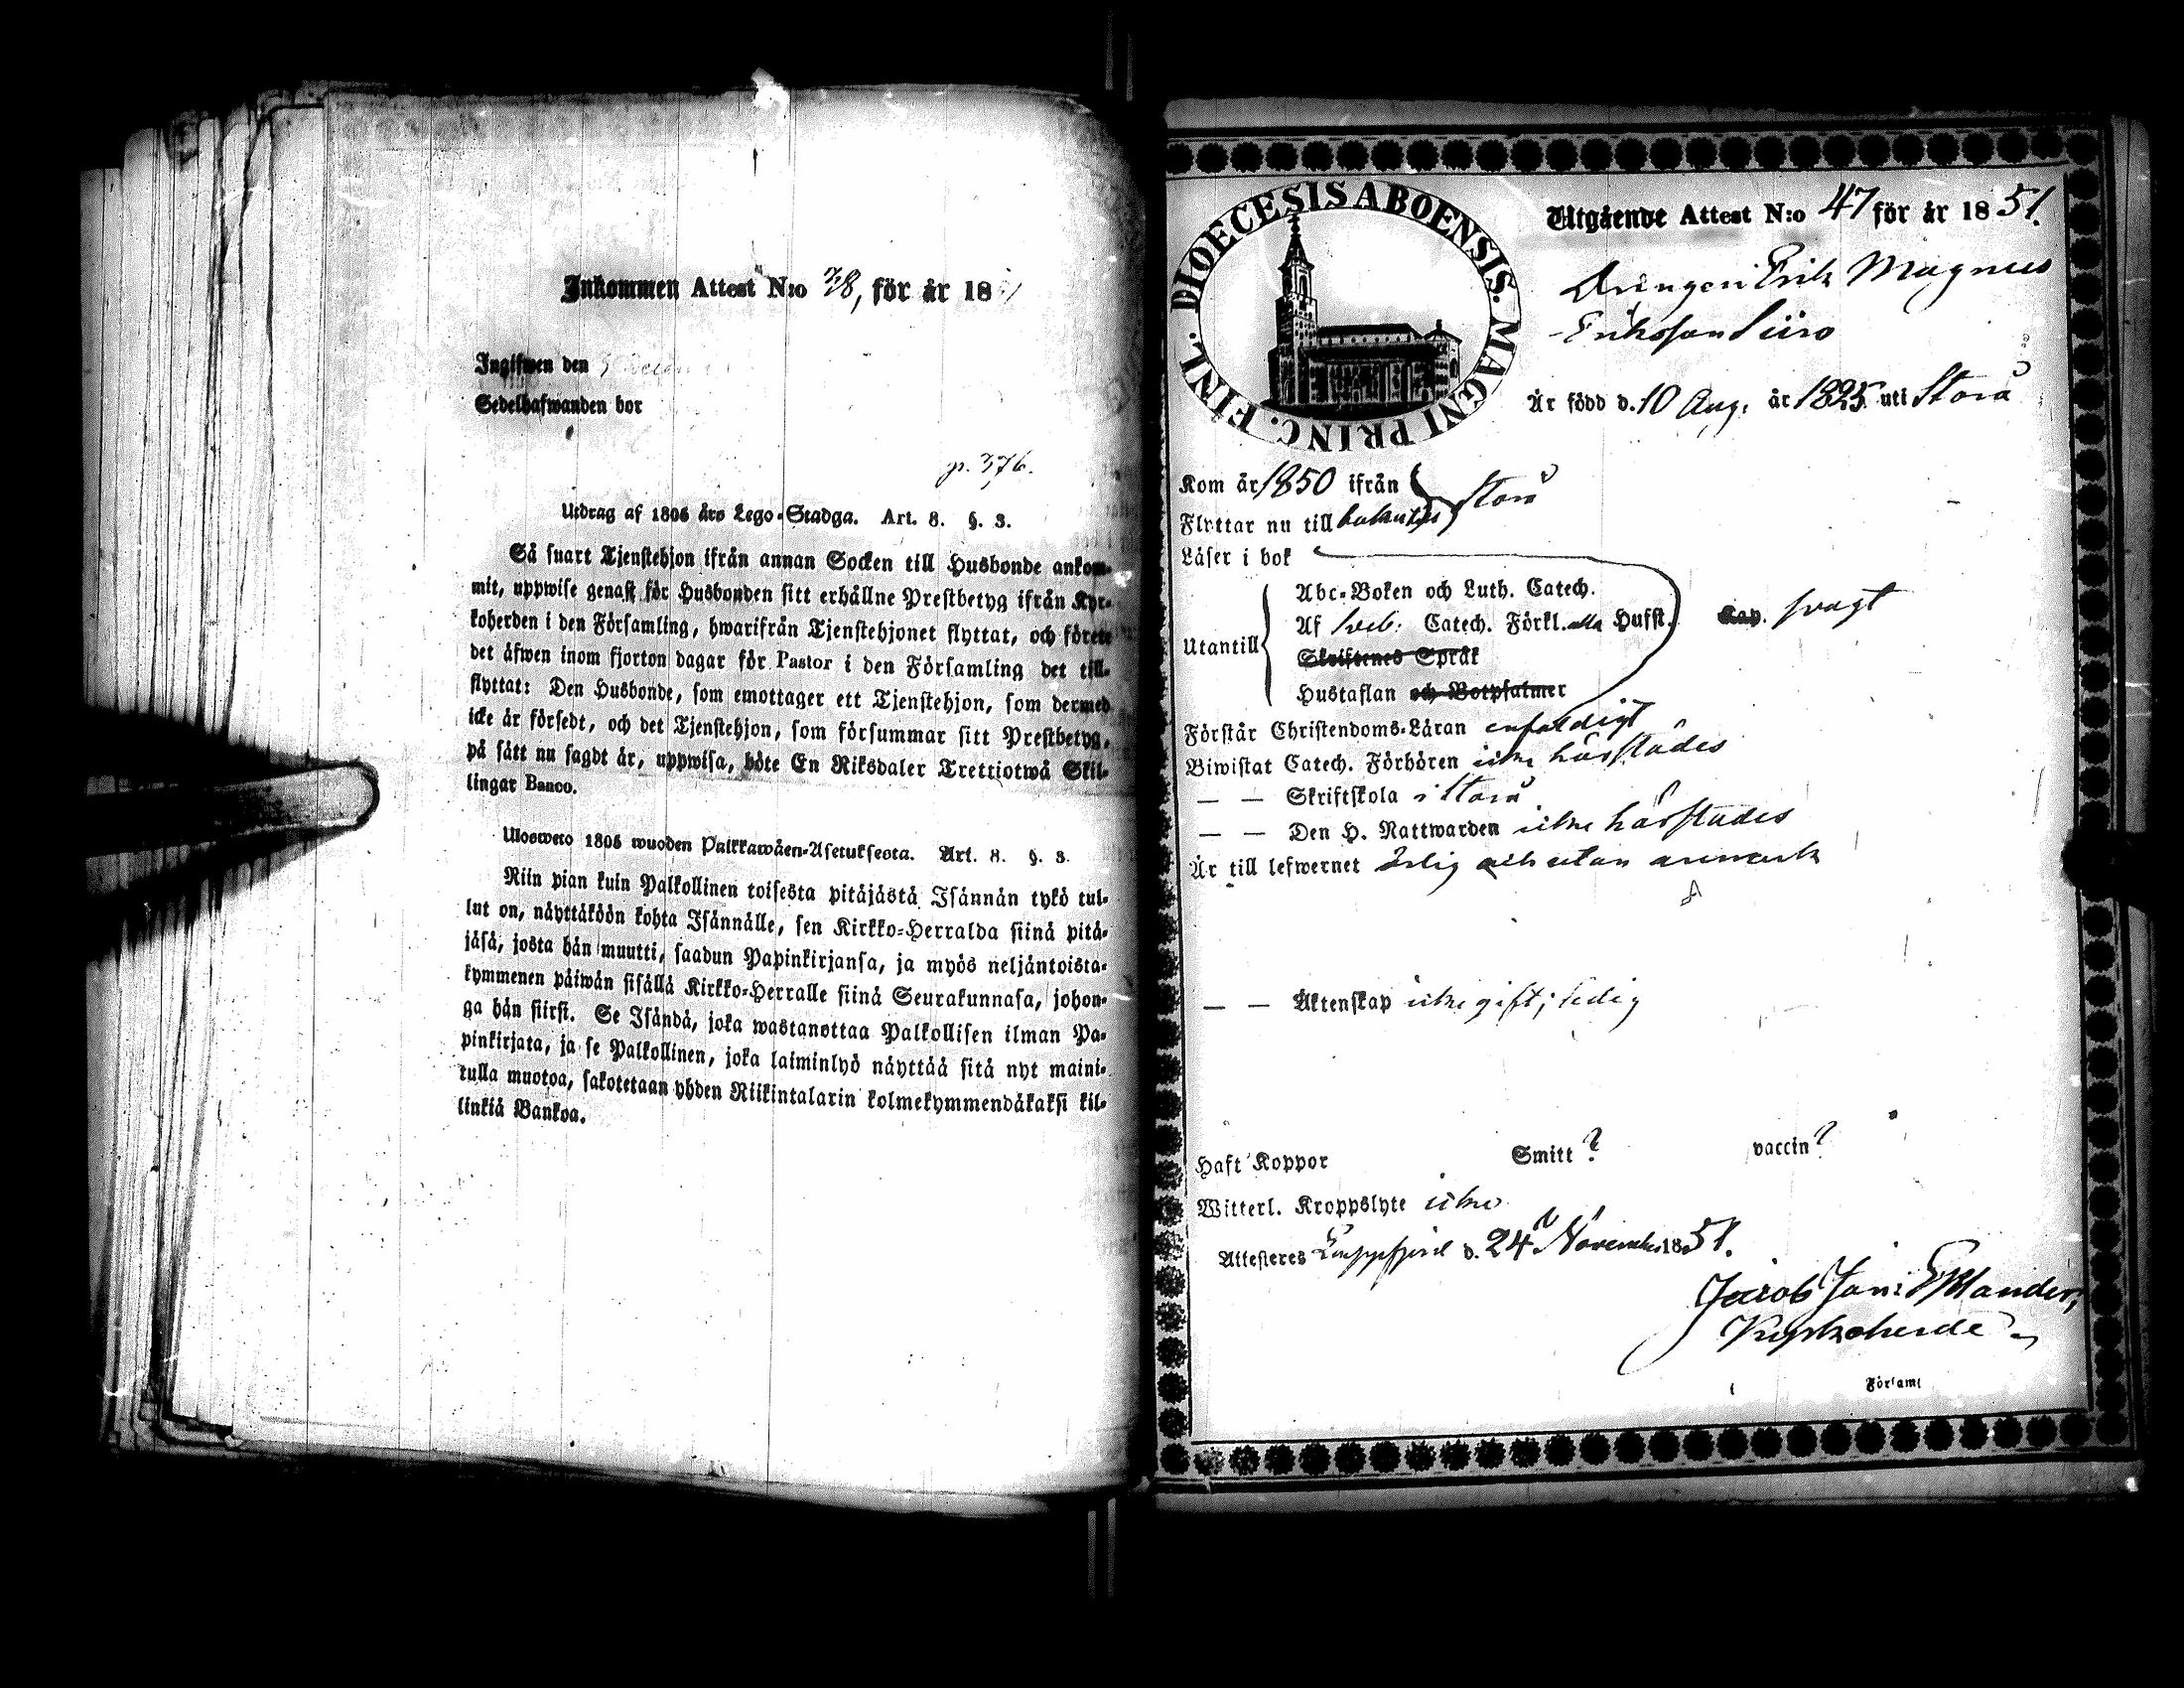 Inkommen Attest N:o 38, för år 18
Ingifwen den 5
Sedelhafwanden bor
p. 376.
Utdrag af 1805 års Lego-Stadga. Art. 8. §. 3.
Så snart Tjenstehjon ifrån annan Socken till Husbonde ankom-
mit, uppwise genast för Husbonden sitt erhållne Prestbetyg ifrån Kyr-
koherden i den Församling, hwarifrån Tjenstehjonet flyttat, och förete
det äfwen inom fjorton dagar för Pastor i den Församling det till-
flyttat: Den Husbonde, som emottager ett Tjenstehjon, som dermed
icke är försedt, och det Tjenstehjon, som försummar sitt Prestbetyg,
på sätt nu sagdt är, uppwisa, böte En Riksdaler Trettiotwå Skil-
lingar Banco.
Ulosweto 1805 wuoden Palkkawäen-Asetuksesta. Art. 8. §. 3.
Niin pian kuin Palkollinen toisesta pitäjästä Isännän tykö tul-
lut on, näyttäköön kohta Isännälle, sen Kirkko-Herralda siinä pitä-
jäsä, josta hän muutti, saadun Papinkirjansa, ja myös neljäntoista-
kymmenen päiwän sisällä Kirkko-Herralle siinä Seurakunnasa, johon-
ga hän siirsi. Se Isändä, joka wastanottaa Palkollisen ilman Pa-
pinkirjata, ja se Palkollinen, joka laiminlyö näyttää sitä nyt maini-
tulla muotoa, sakotetaan yhden Riikintalarin kolmekymmendäkaksi kil-
linkiä Bankoa.
DIOECESIS ABOENSIS. MAGNI PRINC. FINL.
Utgående Attest N:o 47 för år 1851.
Drängen Erik Magnus
Eriksson
Är född d. 10 Aug. år 1825 uti Storå
Kom år 1850 ifrån
Flyttar nu till tillbaka Storå
Läser i bok
Utantill
Abc-Boken och Luth. Catech.
Af Sveb. Catech. Förkl. alla Hufst. Kap. svagt
Skriftenes Språk
Hustaflan och Botpsalmer
Förstår Christendoms-Läran enfaldigt
Biwistat Catech. Förhören icke härstädes
— — Skriftskola i Storå
— — Den H. Nattwarden icke härstädes
Är till lefwernet ärlig och utan anmärk
— — Äktenskap icke gift; ledig
Haft Koppor Smitt? vaccin?
Witterl. Kroppslyte icke
Attesteres Lappfjerd d. 24 November 1851.
Jacob Joh: Estlander,
Kyrkoherde
Församl